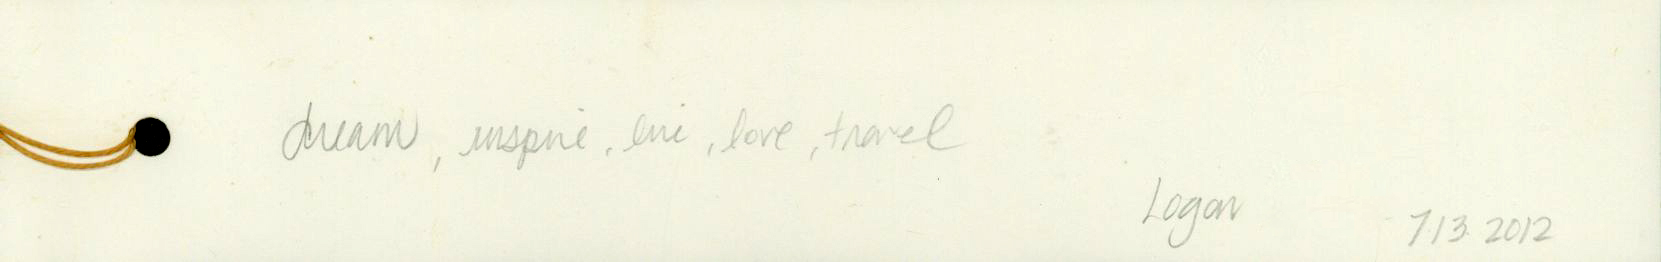 dream, inspire, live, love, travel
Logan
7.13.2012